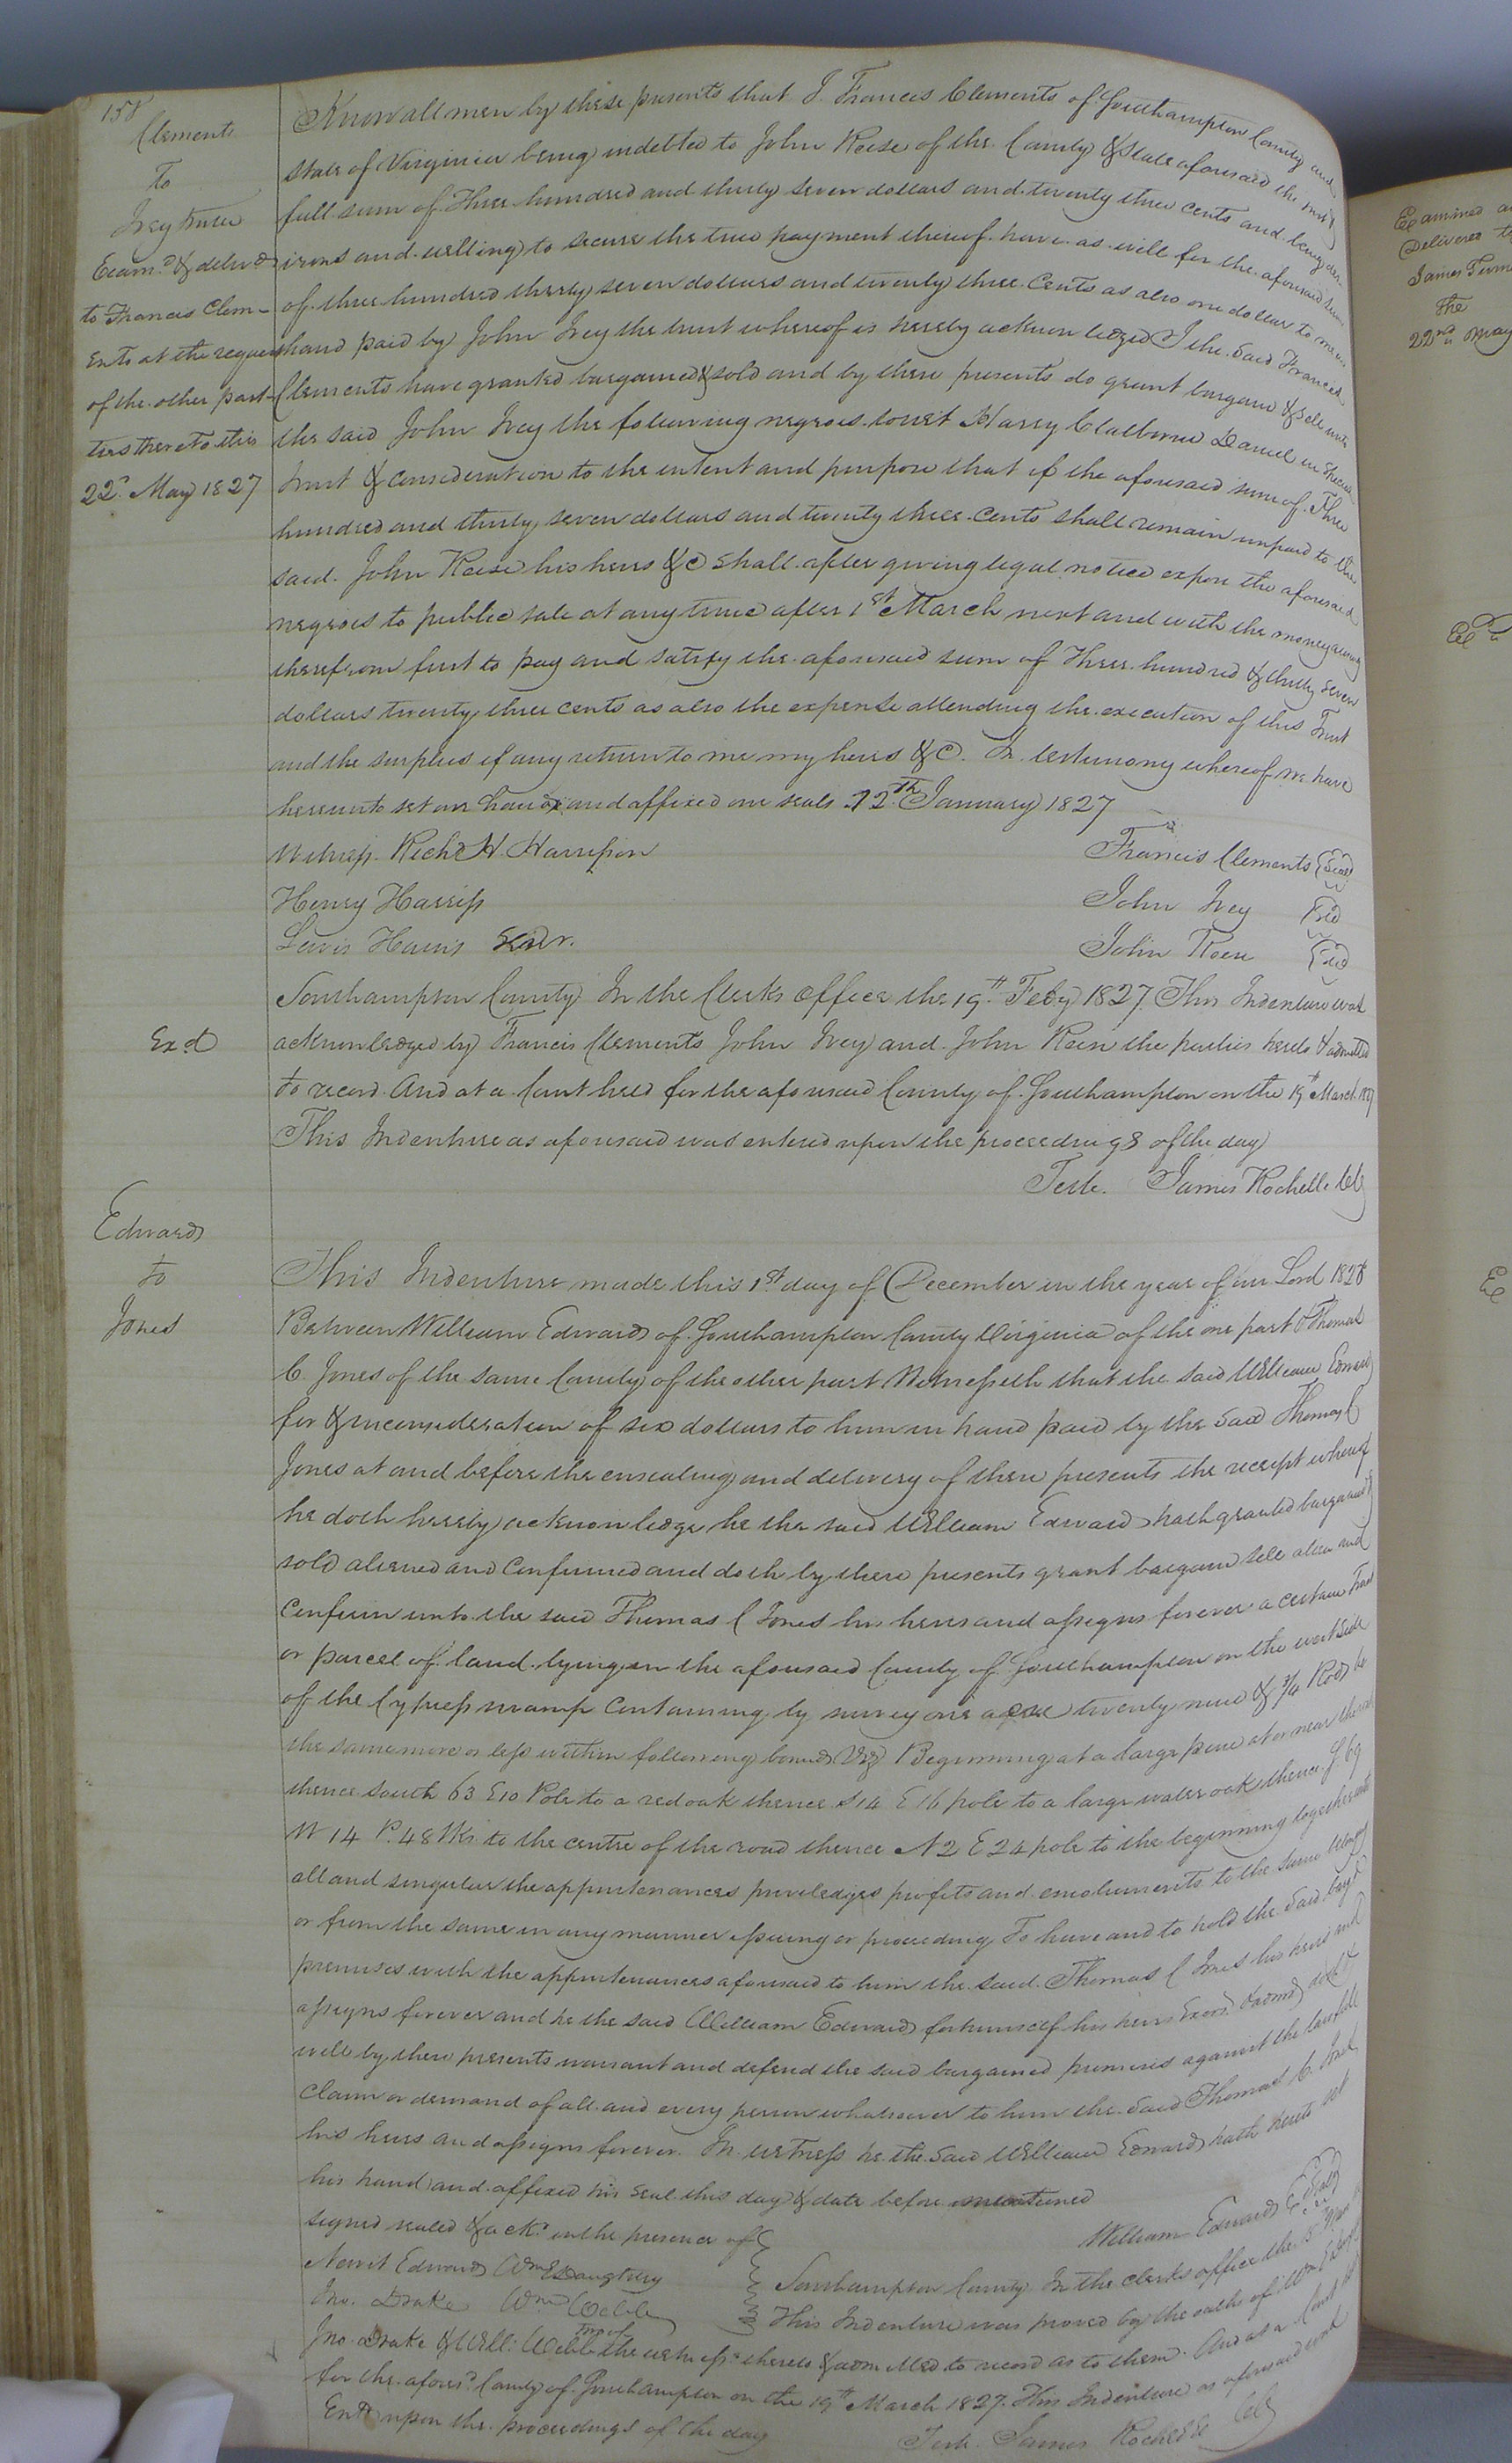 158
Clements
to
Ivey trustee
Exam.d & delivd
to Francis Clem-
ents at the request
of the other part-
ties thereto this
22d May 1827
Know all men by these presents that I Francis Clements of Southampton County and
State of Virginia being indebted to John Reese of the County & State aforesaid the
full sum of Three hundred and thirty seven dollars and twenty three cents and being des-
irous and willing to secure the true payment thereof have as well for the aforesaid sum
of three hundred thirty seven dollars and twenty three Cents as also one dollar to me in
hand paid by John Ivey the whereof is hereby acknowledged I the Said Frances
Clements have granted bargained & sold and by these presents do grant bargain & sell unto
the said John Ivey the following negroes towit Harry Claiborne Daniel in Special
trust & consideration to the intent and purpose that if the aforesaid sum of Three
hundred and thirty seven dollars and twenty three Cents shall remain unpaid to the
said John Reese his heirs &C shall after giving legal notice expose the aforesaid
negroes to public sale at any time after 1st March next and with the money arising
therefrom first to pay and satisfy the aforesaid sum of Three hundred & thirty seven
dollars twenty three cents as also the expense attending the execution of this Trust
and the surplus if any return to me my heirs &C. In testimony whereof we have
hereunto set our hands and affixed our seals 22th January 1827
Witness Richd H. Harrison
Francis Clements (Seal)
Henry Harriss
John Ivey (Seal)
Lewis Harris Senr.
John Reese (Seal)
Southampton County In the Clerks Office the 19th Feby 1827 This Indenture was
Exd
acknowledged by Francis Clements John Ivey and John Reese the parties hereto & admitted
to record And at a Court held for the aforesaid County of Southampton on the 19th March 1827
This Indenture as aforesaid was entered upon the proceedings of the day
Teste. James Rochelle Clk
Edwards
to
Jones
This Indenture made this 1st day of December in the year of our Lord 1826
Between William Edwards of Southampton County Virginia of the one part & Thomas
C. Jones of the same County of the other part Witnesseth that the said William Edwards
for & in consideration of six dollars to him in hand paid by the Said Thomas C
Jones at and before the ensealing and delivery of these presents the receipt whereof
he doth hereby acknowledge he the said William Edwards hath granted bargained
sold aliened and Confirmed and doth by these presents grant bargain sell alien and
Confirm unto the said Thomas C Jones his heirs and assigns forever a certain Tract
or parcel of land lying in the aforesaid County of Southampton on the west side
of the Cypress swamp Containing by survey one acre twenty nine & 3/4 Rods be
the same more or less within following bounds Viz Beginning at a large pine at or near the
thence South 63 E10 Pole to a red oak thence S14 E 16 pole to a large water oak thence S 69
W 14 P. 48 lks to the centre of the road thence N2 E 24 pole to the beginning together with
all and singular the appurtenances priviledges profits and emoluments to the same belonging
or from the same in any manner issuing or proceeding To have and to hold the Said bargd
premises with the appurtenances aforesaid to him the said Thomas C Jones his heirs and
assigns forever and he the said William Edwards for himself his heirs Exors & admrs doth &
will by these presents warrant and defend the said bargained premises against the lawfull
Claim or demand of all and every person whatsoever to him the Said Thomas C. Jones
his heirs and assigns forever. In witness he the Said William Edwards hath hereto set
his hand and affixed his Seal this day & date before mentioned
William Edwards (Seal)
Signed sealed & ackd in the presence of
Newit Edwards Wm E Daughtrey
Jno. Drake Wm Webb
Southampton County In the Clerks office the
This Indenture was proved by the oaths of Wm E
Jno. Drake & Will: Webb three of the witnesses thereto & admitted to record as to them. And at a Court held
for the aforesd County of Southampton on the 19th March 1827. This Indenture as aforesaid was
Entd upon the proceedings of the day
Teste James Rochelle Clk
Examined
Delivered to
James
the
22nd May
Exd